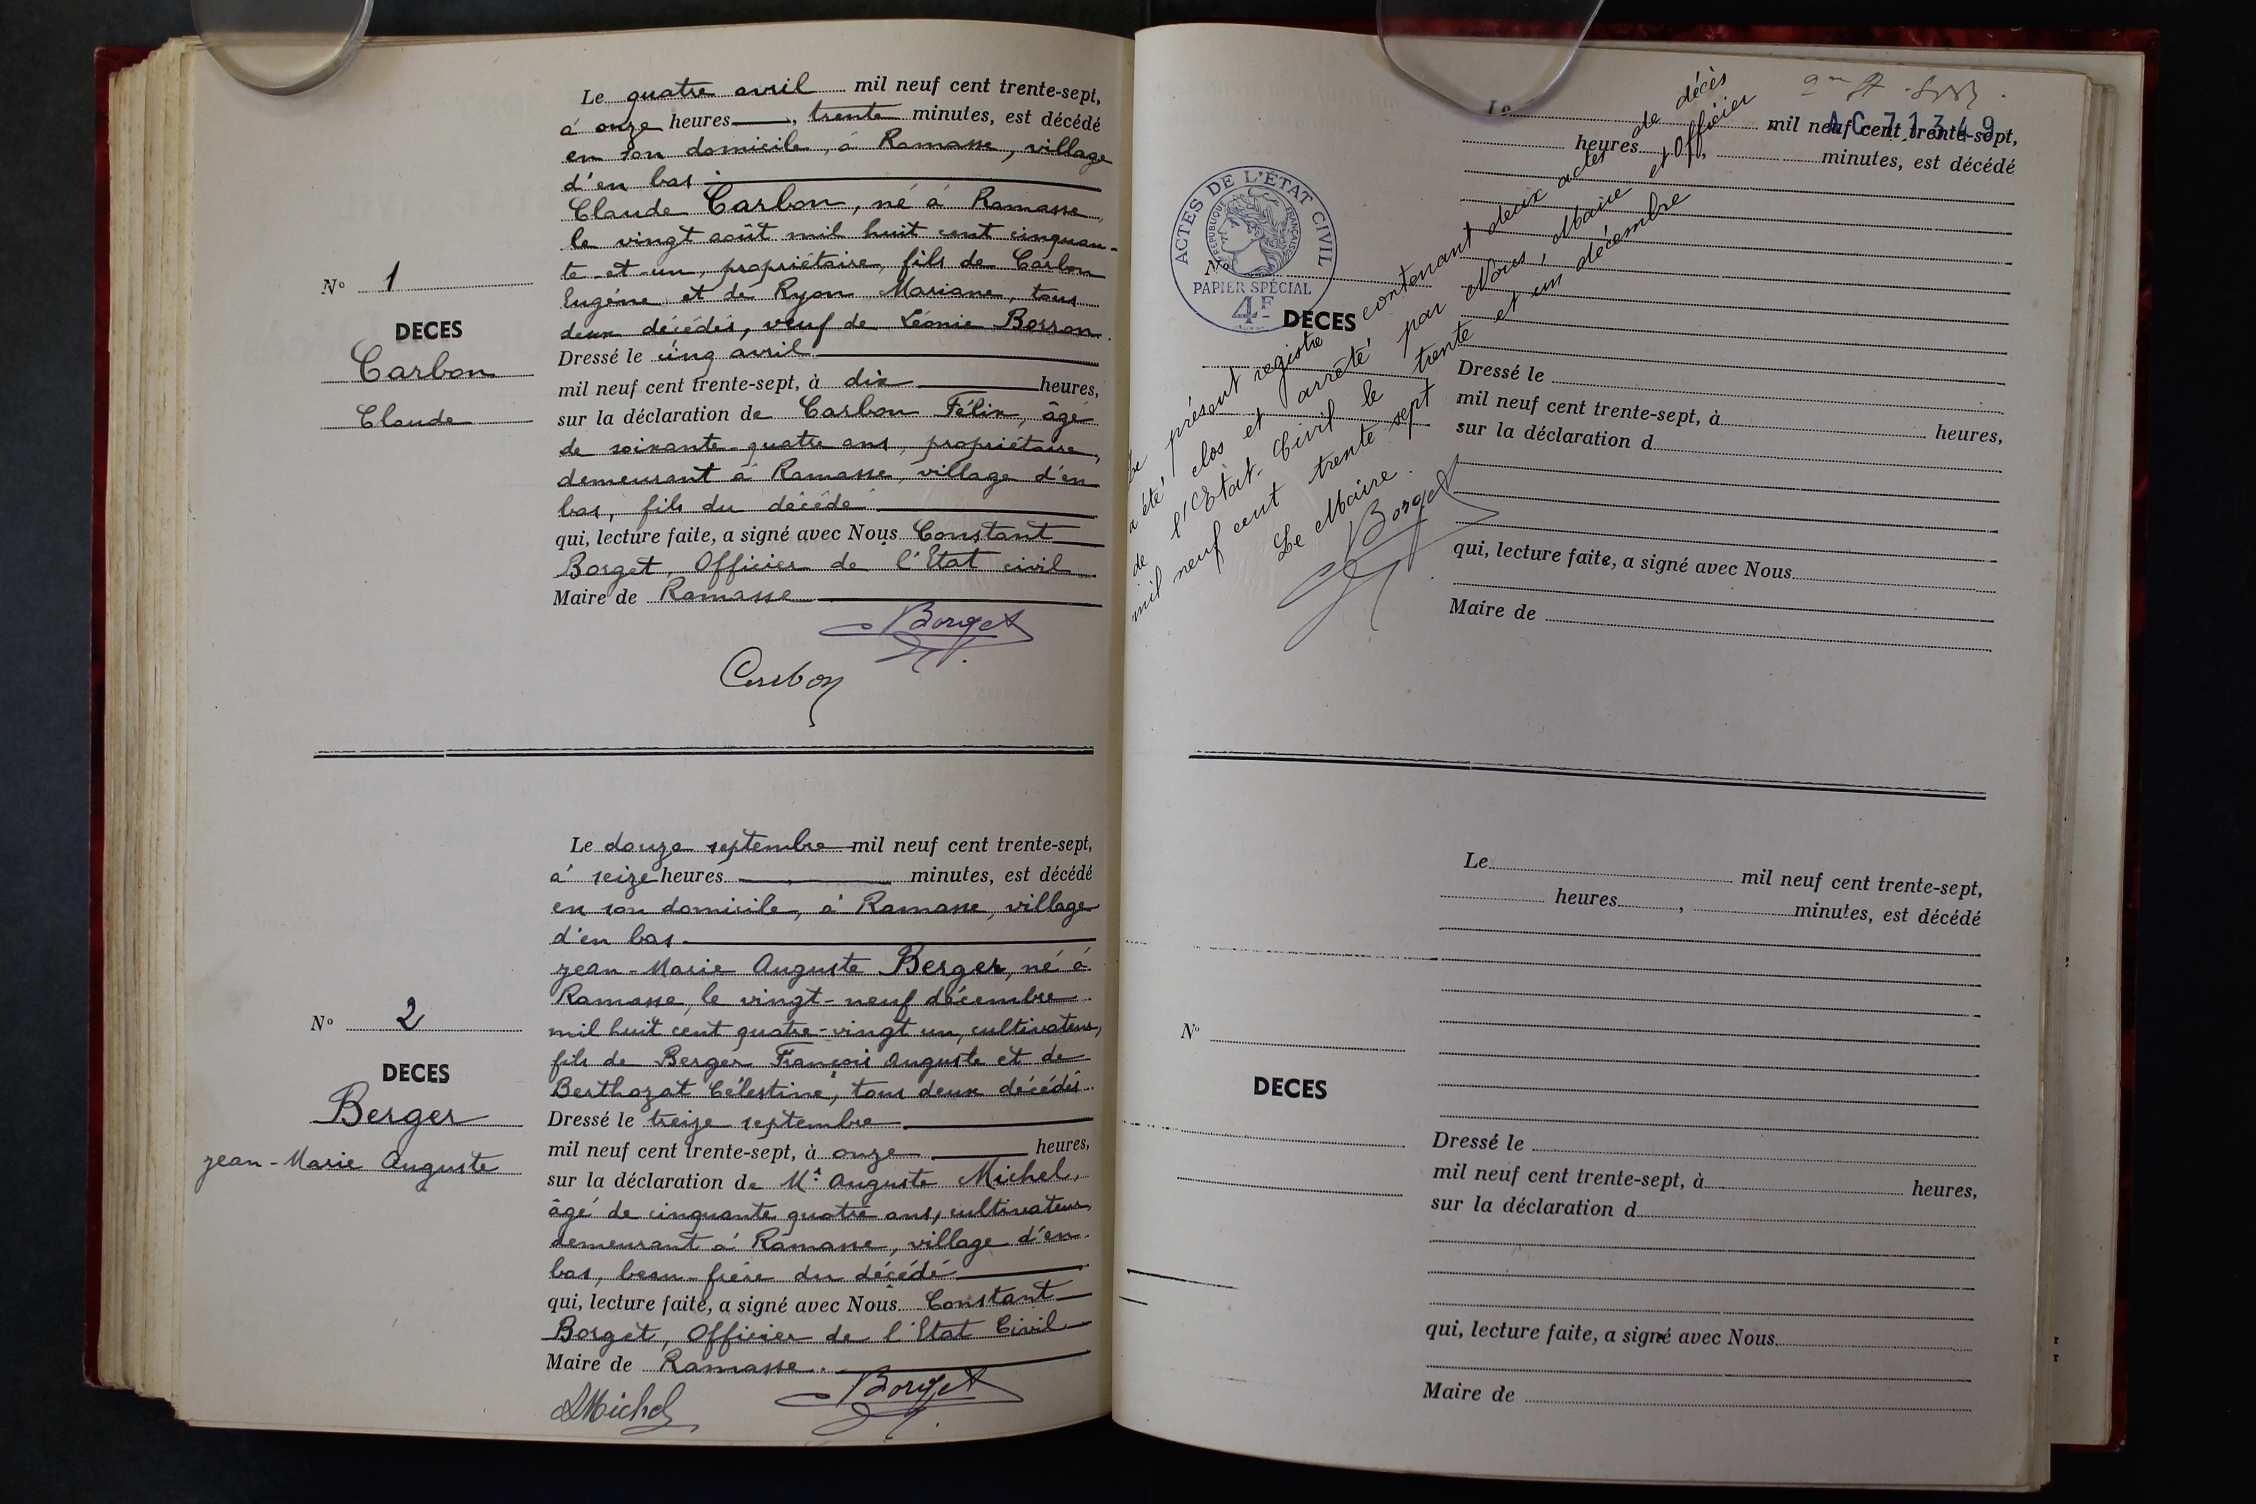 Le quatre avril mil neuf cent trente-sept,
à onze heures, trente minutes, est décédé
en son domicile, à Ramasse, village
d'en bas
Claude Carbon, né à Ramasse,
le vingt août mil huit cent cinquan-
te-et-un, propriétaire, fils de Carbon
Eugène et de Ryon Mariane, tous
deux décédés, veuf de Léonie Borron.
Dressé le cinq avril
mil neuf cent trente-sept, à dix heures,
sur la déclaration de Carbon Félix, âgé
de soixante-quatre ans, propriétaire,
demeurant à Ramasse, village d'en
bas, fils du décédé
qui, lecture faite, a signé avec Nous Constant
Borget, Officier de l'Etat civil
Maire de Ramasse
Borget
Carbon
No 1
DECES
Carbon
Claude
Le douze septembre mil neuf cent trente-sept,
à seize heures minutes, est décédé
en son domicile, à Ramasse, village
d'en bas.
Jean-Marie Auguste Berger, né à
Ramasse, le vingt-neuf décembre
mil huit cent quatre-vingt un, cultivateur,
fils de Berger François Auguste et de
Berthozat Célestine, tous deux décédés.
Dressé le treize septembre
mil neuf cent trente-sept, à onze heures,
sur la déclaration de Mr Auguste Michel,
âgé de cinquante quatre ans, cultivateur,
demeurant à Ramasse, village d'en
bas, beau-frère du décédé
qui, lecture faite, a signé avec Nous Constant
Borget, Officier de l'Etat Civil
Maire de Ramasse.
AMichel
Borget
No 2
DECES
Berger
Jean-Marie Auguste
AC 71349
Le mil neuf cent trente-sept,
heures, minutes, est décédé
ACTES DE L'ETAT CIVIL
REPUBLIQUE FRANÇAISE
PAPIER SPÉCIAL
4F
No
DECES
Le présent registre contenant deux actes de décès
a été clos et arrêté par Nous, Maire et Officier
de l'Etat-Civil le trente et un décembre
mil neuf cent trente sept
Le Maire.
Borget
Dressé le
mil neuf cent trente-sept, à heures,
sur la déclaration d
qui, lecture faite, a signé avec Nous
Maire de
Le mil neuf cent trente-sept,
heures, minutes, est décédé
No
DECES
Dressé le
mil neuf cent trente-sept, à heures,
sur la déclaration d
qui, lecture faite, a signé avec Nous
Maire de